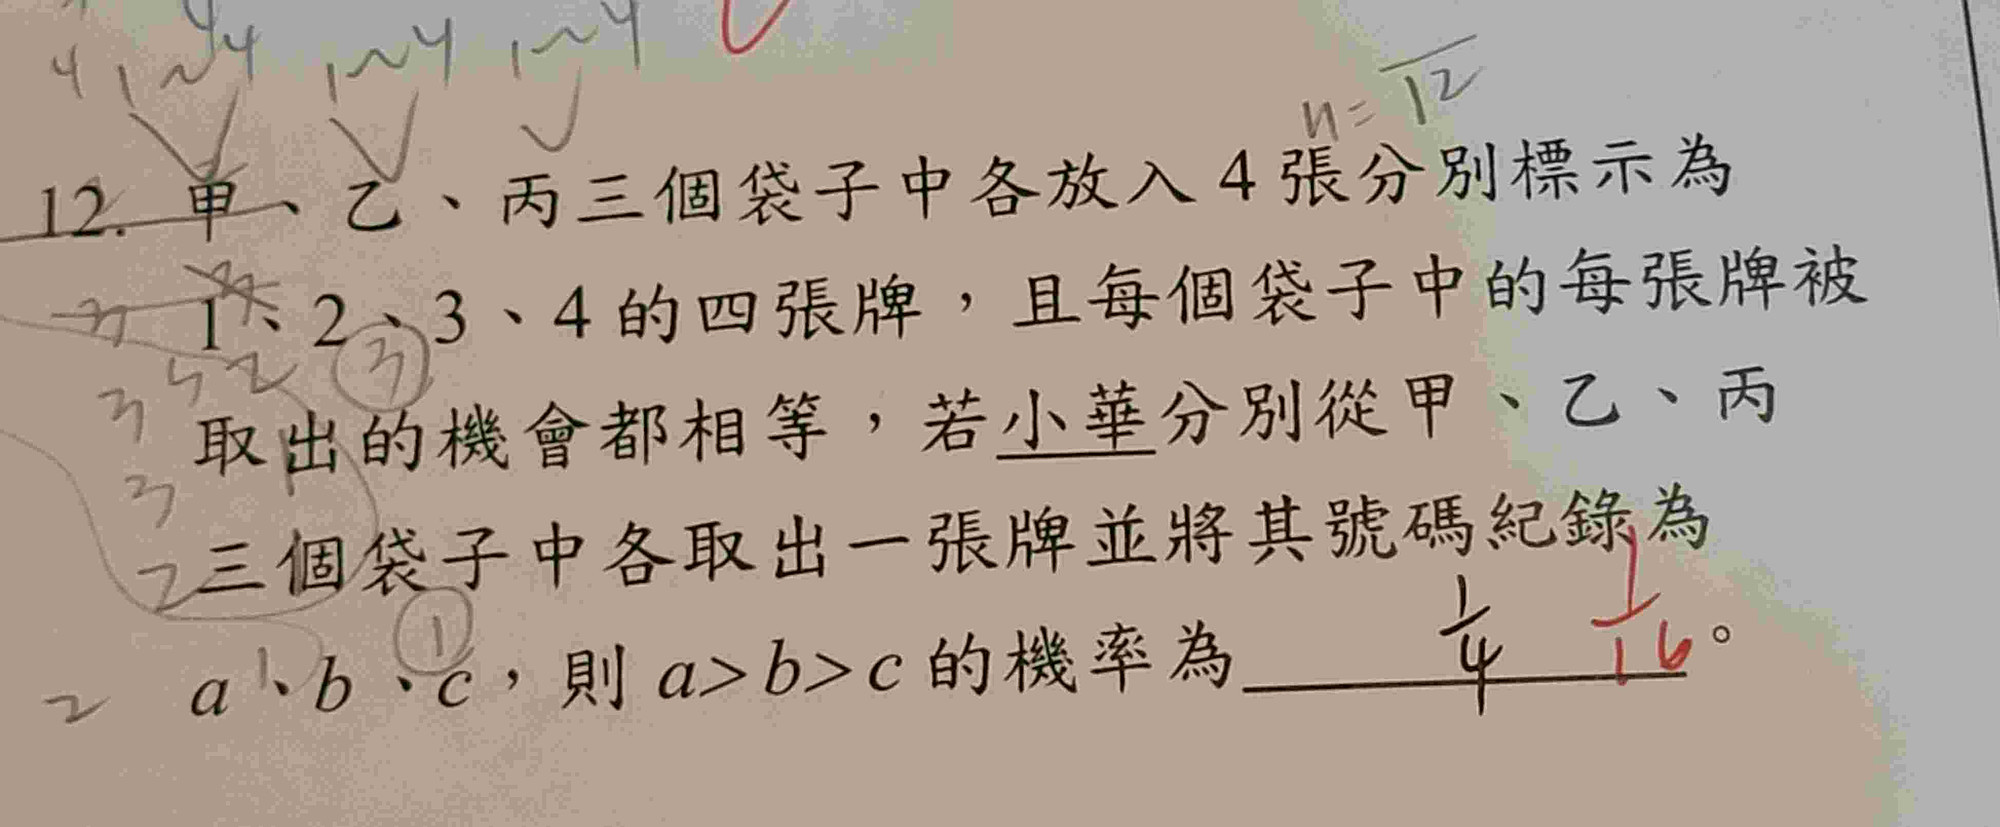 4 1~4 1~4 1~4
n= 12
12. 甲、乙、丙三個袋子中各放入4張分別標示為
1、2、3、4的四張牌，且每個袋子中的每張牌被
3 2 3
取出的機會都相等，若小華分別從甲、乙、丙
3
三個袋子中各取出一張牌並將其號碼紀錄為
2 1 1/4 1/16
a、b、c，則a>b>c的機率為________。
2 1